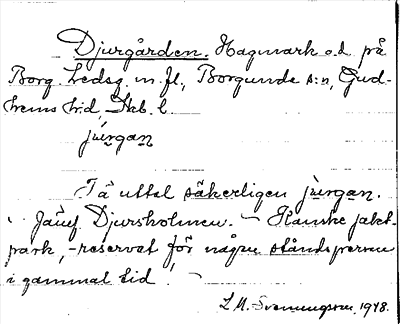 Djurgården. Hagmark o.d. på
Borg. Ledsg. m. fl., Borgunda s:n, Gud-
hems hd, Skb. l.
jurgan
Tä uttal säkerligen jurgan.
Jämf Djursholmen. – Kanske jakt-
park, -reservat för någon ståndsperson
i gammal tid.
L. M. Svennungsson, 1948.